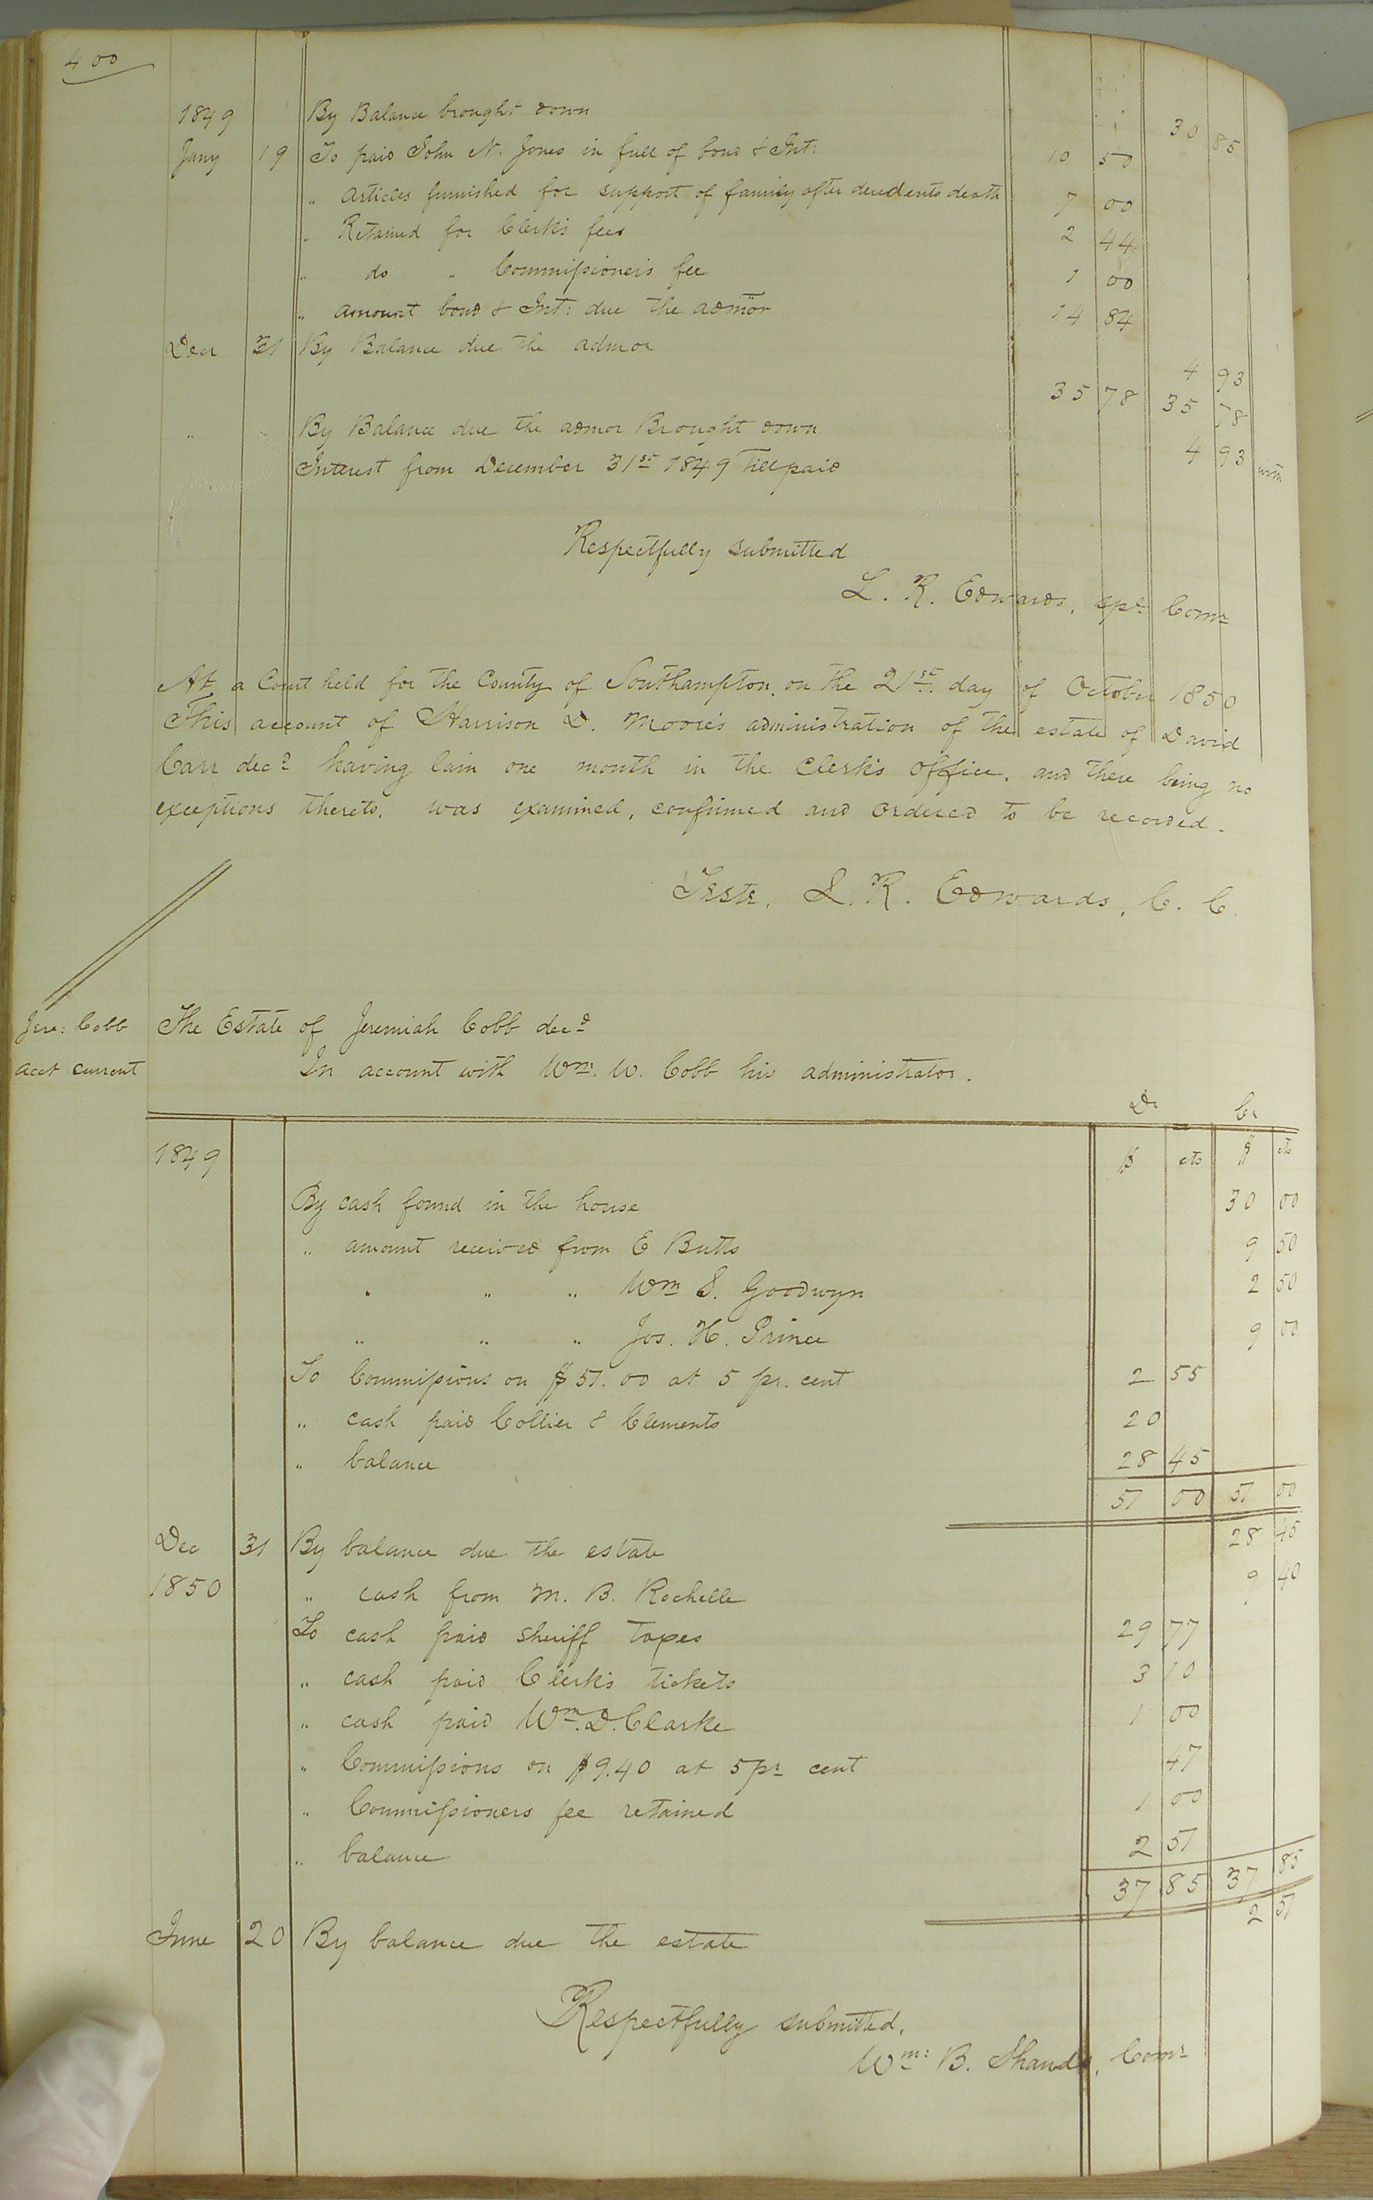 400
1849 By Balance brought down 30 85
Jany 19 To paid John N. Jones in full of bond & Int: 10 50
" articles furnished for support of family after decedents death 7 00
" Retained for Clerk's fees 2 44
" do " Commissioners fee 1 00
" amount bond & Int: due the admor 14 84
Decr 31 By Balance due the admor 4 93
35 78 35 78
" " By Balance due the admor Brought down 4 93 with
Interest from December 31st 1849 till paid
Respectfully submitted
L. R. Edwards, spl: Comr
At a Court held for the County of Southampton, on the 21st. day of October 1850
This account of Harrison D. Moore's administration of the estate of David
Carr decd having lain one month in the Clerk's office, and there being no
exceptions thereto, was examined, confirmed and ordered to be recorded.
Teste, L. R. Edwards, C. C.
Jere: Cobb The Estate of Jeremiah Cobb decd
acct current In account with Wm. W. Cobb his administrator.
Dr Cr
1849 $ cts $ cts
By cash found in the house 30 00
" amount received from E Butts 9 50
" " " Wm S. Goodwyn 2 50
" " " Jos. H. Prince 9 00
To Commissions on $51.00 at 5 pr. cent 2 55
" cash paid Collier & Clements 20
" balance 28 45
51 00 51 00
Dec 31 By balance due the estate 28 45
1850 " cash from M. B. Rochelle 9 40
To cash paid sheriff taxes 29 77
" cash paid Clerk's tickets 3 10
" cash paid Wm. D. Clarke 1 00
" Commissions on $9.40 at 5 pr cent 47
" Commissioners fee retained 1 00
" balance 2 51
37 85 37 85
June 20 By balance due the estate 2 51
Respectfully submitted,
Wm: B. Shands, Comr